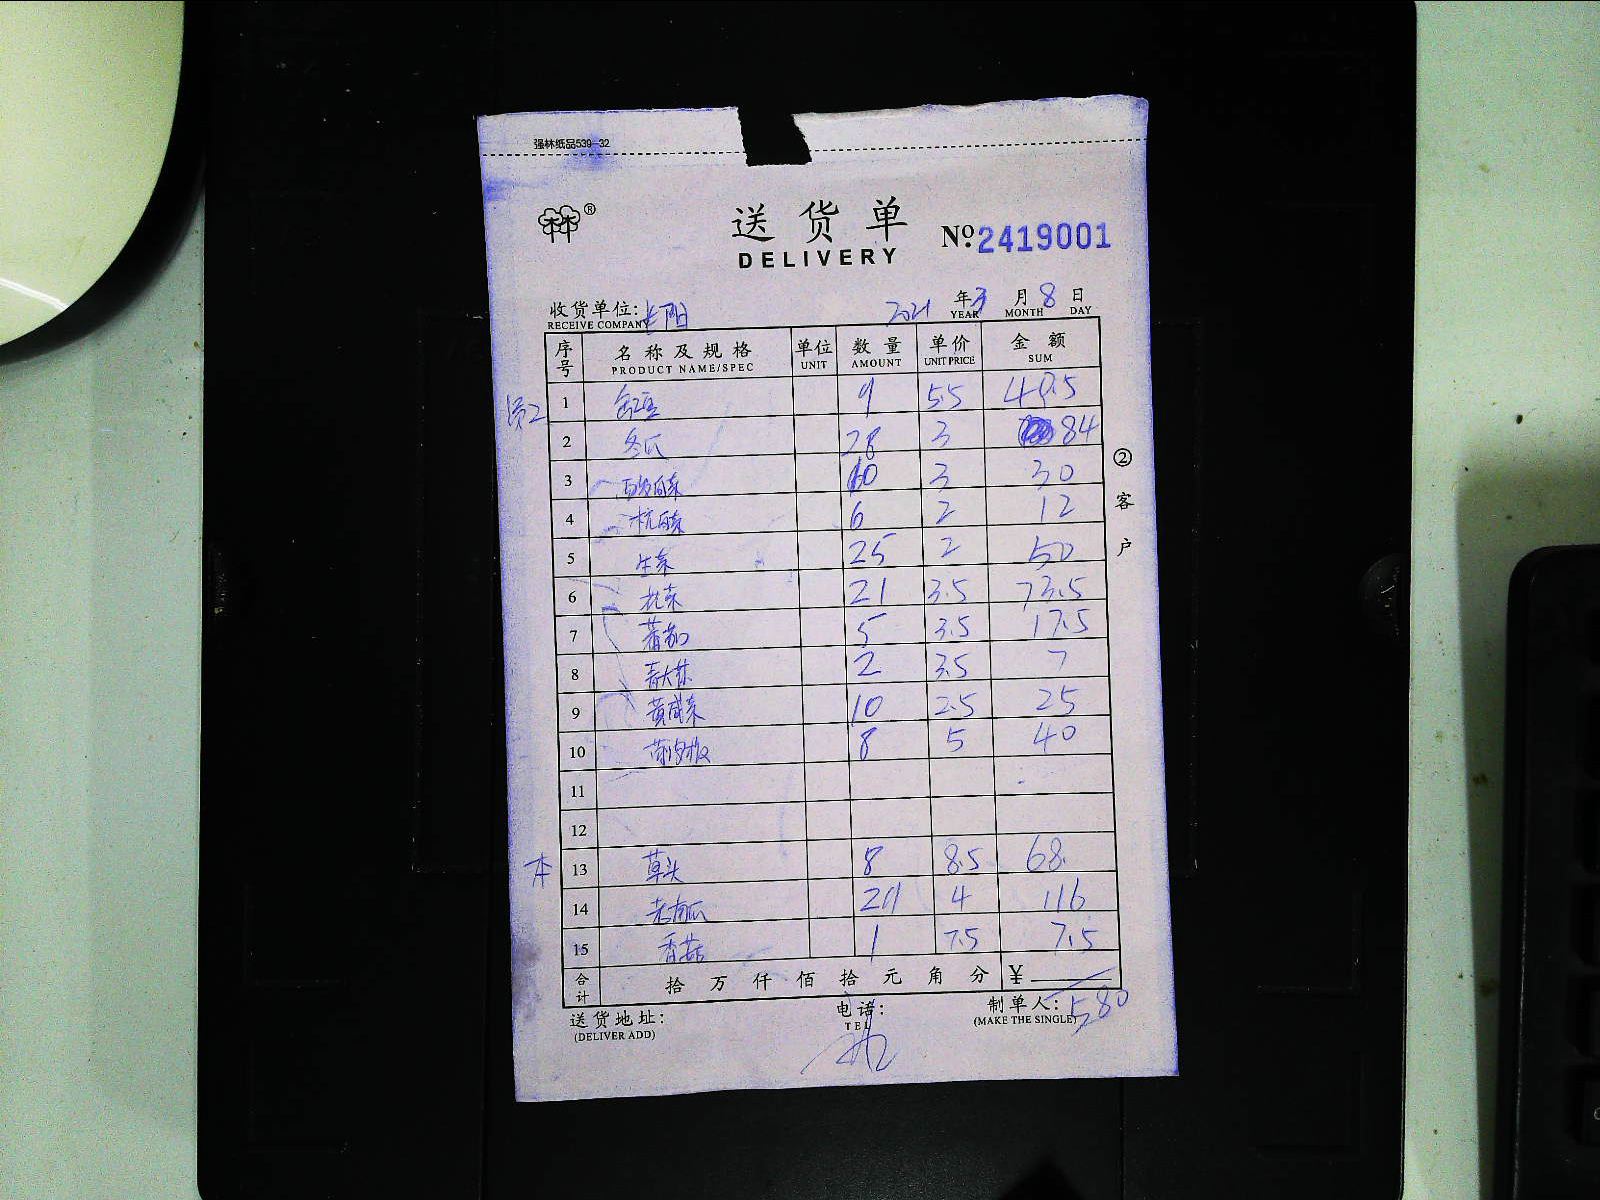 强林纸品539-32
®
送货单
DELIVERY
Nº.2419001
收货单位:长阳 2021年3月8日
RECEIVE COMPANY YEAR MONTH DAY
序号 名称及规格 单位 数量 单价 金额
PRODUCT NAME/SPEC UNIT AMOUNT UNIT PRICE SUM
员工 1 9 5.5 49.5
2 冬瓜 28 3 84
3 10 3 30
4 杭白菜 6 2 12
5 生菜 25 2 50
6 杭菜 21 3.5 73.5
7 蕃茄 5 3.5 17.5
8 青大蒜 2 3.5 7
9 黄咸菜 10 2.5 25
10 8 5 40
11
12
本 13 草头 8 8.5 68
14 老南瓜 29 4 116
15 香菇 1 7.5 7.5
合计 拾万仟佰拾元角分 ¥
580
送货地址: 电话: 制单人:
(DELIVER ADD) TEL (MAKE THE SINGLE)
②客户